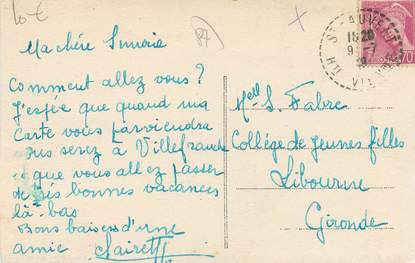 10 €
87
Ma chère Simone
Comment allez vous ?
J'espère que quand ma
carte vous parviendra
vous serez à Villefranche
et que vous allez passer
de très bonnes vacances
là-bas
Bons baisers d'une
amie Clairette
Melle S. Fabre
Collège de Jeunes filles
Libourne
Gironde
ST AUVENT
18 20
9 - 7
HTE VIENNE
70